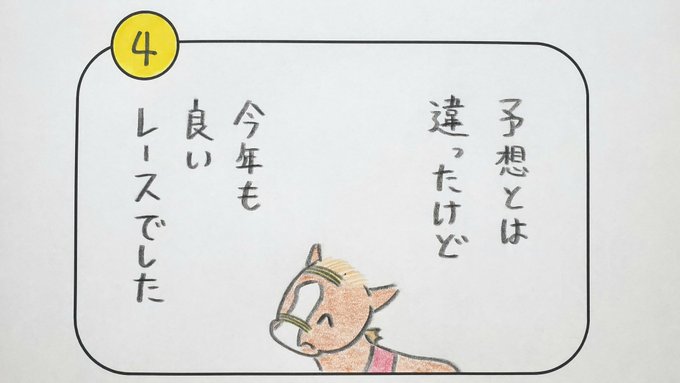 4
予想とは
違ったけど
今年も
良い
レースでした